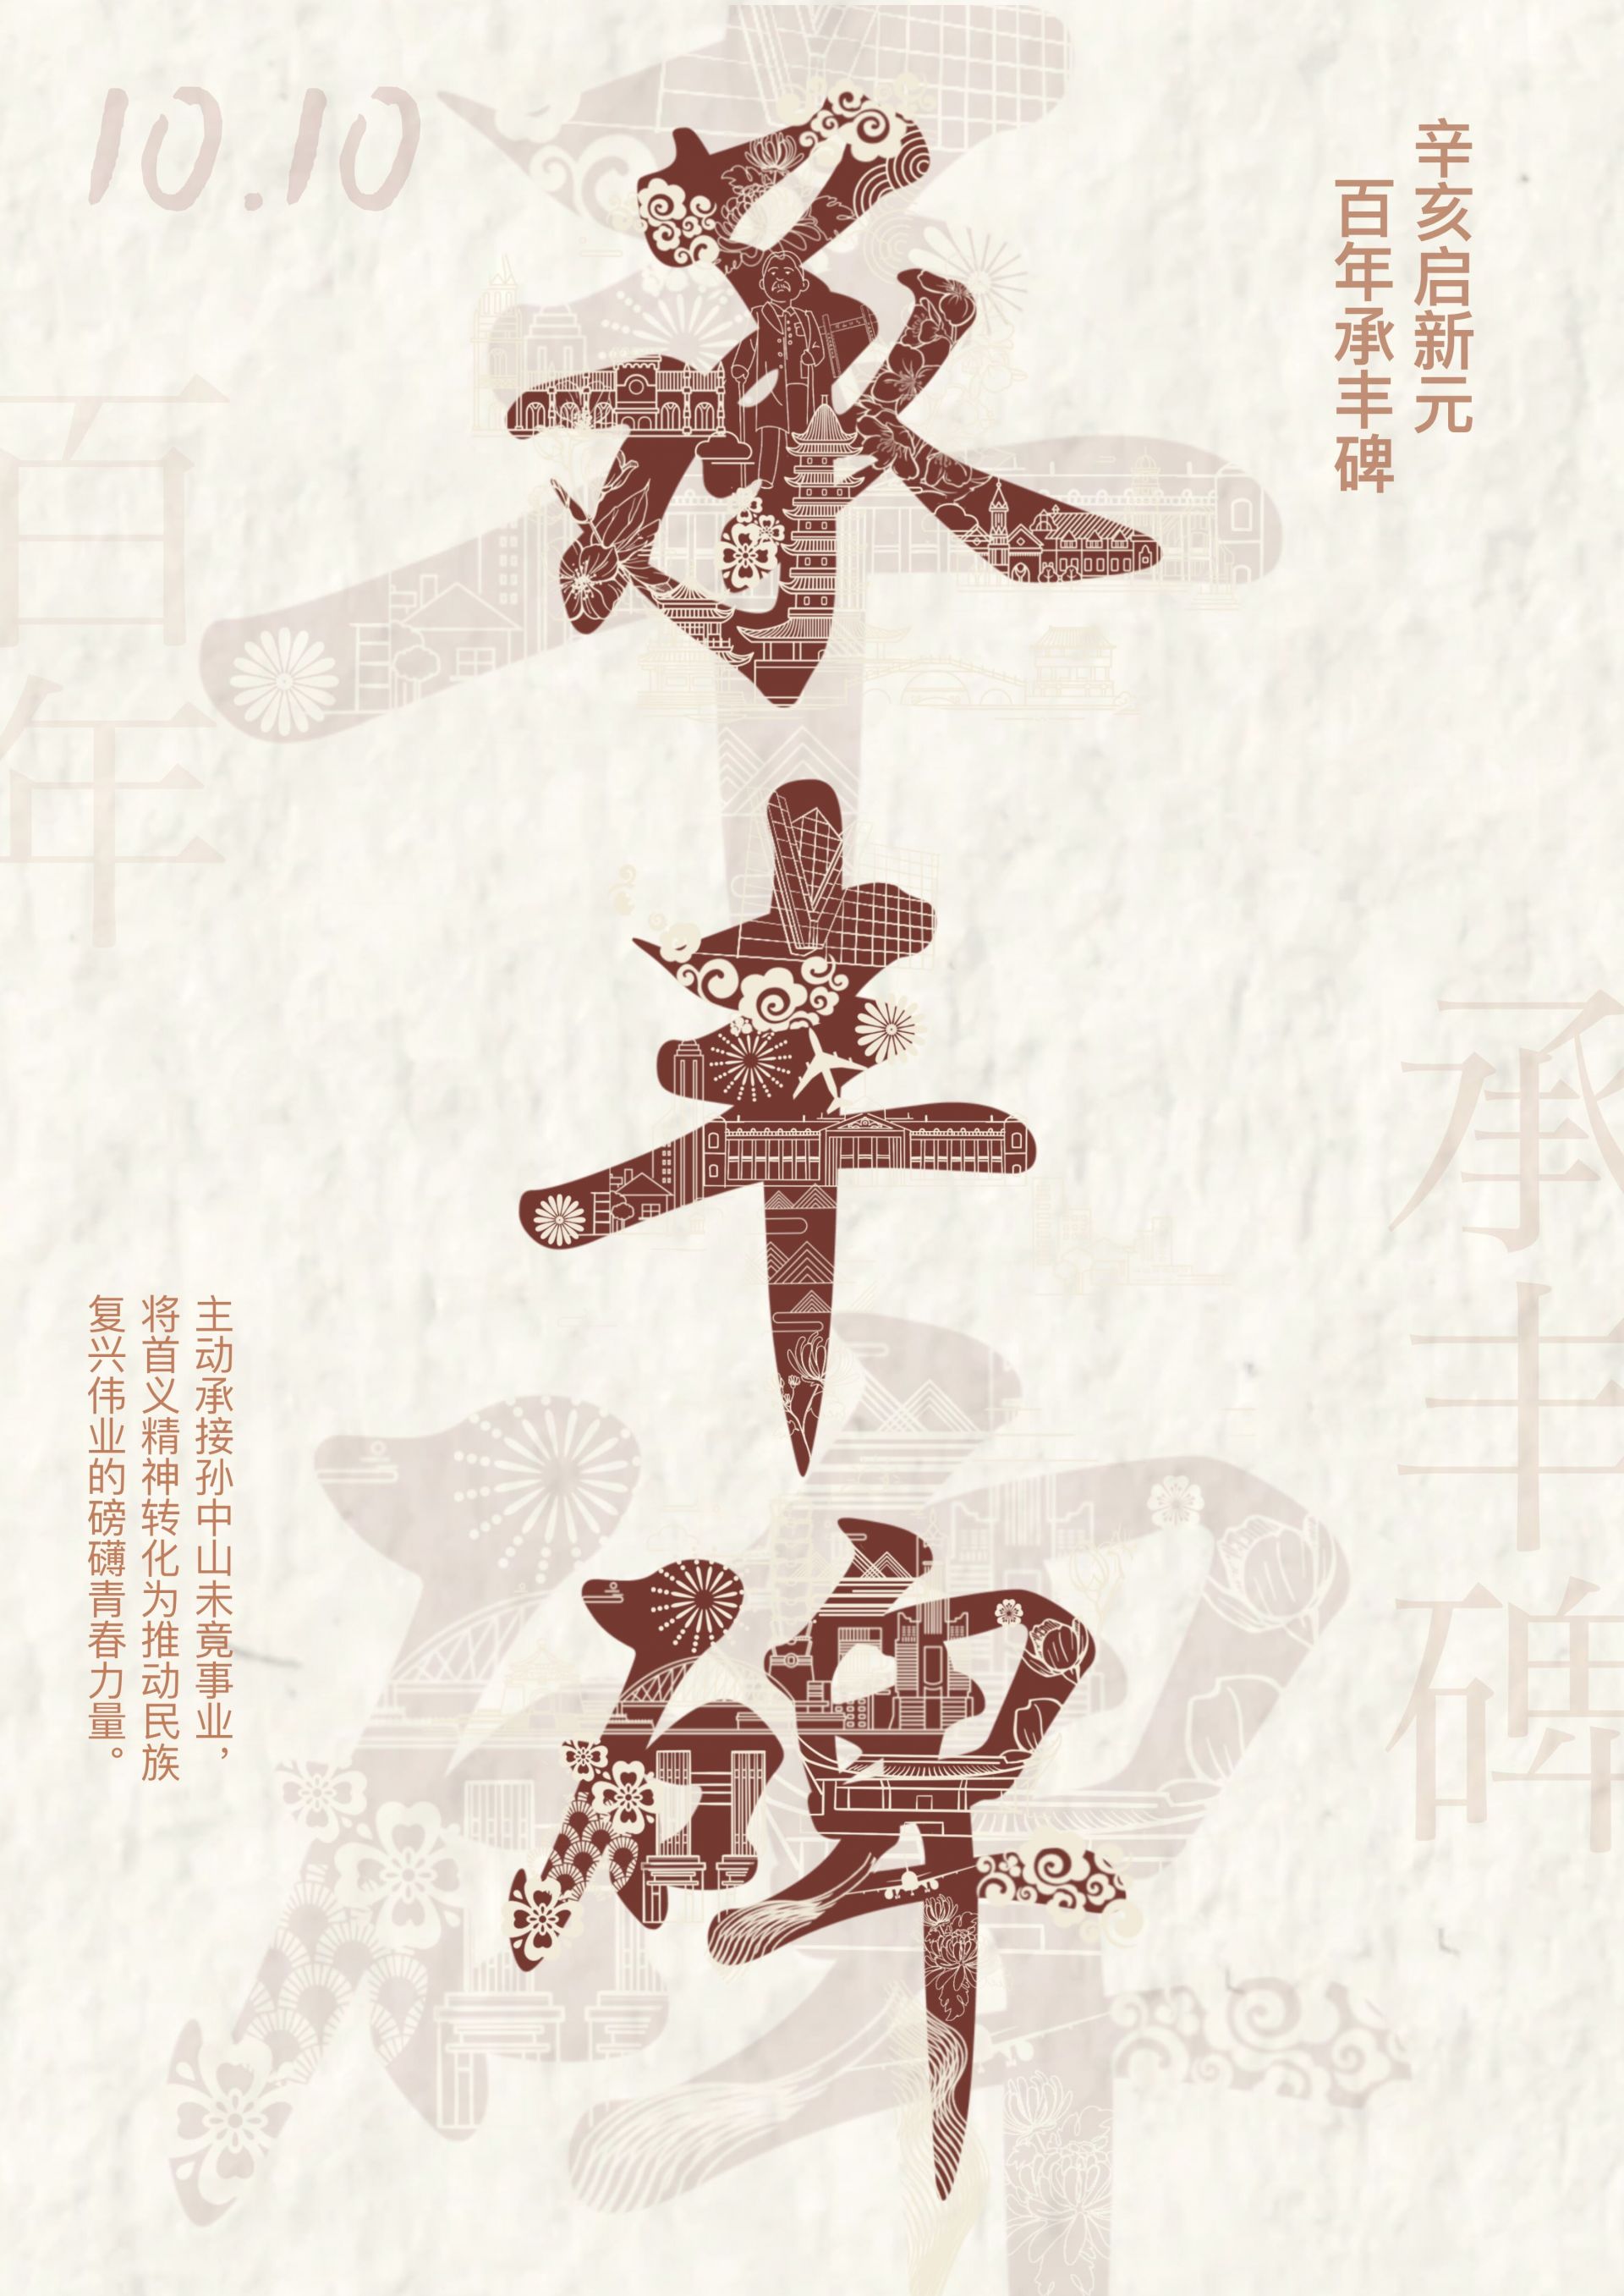 10.10
辛亥启新元
百年承丰碑
承丰碑
百年
承丰碑
主动承接孙中山未竟事业，
将首义精神转化为推动民族
复兴伟业的磅礴青春力量。